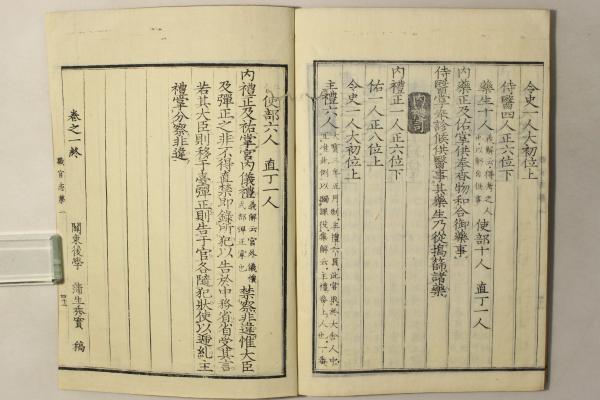 令史一人大初位上
侍醫四人正六位下
藥生十人 使部十人 直丁一人
內藥正及佑掌供奉香物和合御藥事
侍醫掌奉診候供醫事其藥生乃從搗篩諸藥
內禮司
內禮正一人正六位下
佑一人正八位上
令史一人大初位上
主禮六人
使部六人 直丁一人
內禮正及佑掌宮內儀禮 禁察非違惟大臣
及彈正之非不得直禁即錄所犯以告於中務省省受其言
若其大臣則移于臺彈正則告于官各隨犯狀使以遞糺主
禮掌分察非違
卷之一終
職官志 一
關東後學 蒲生秀實 稿